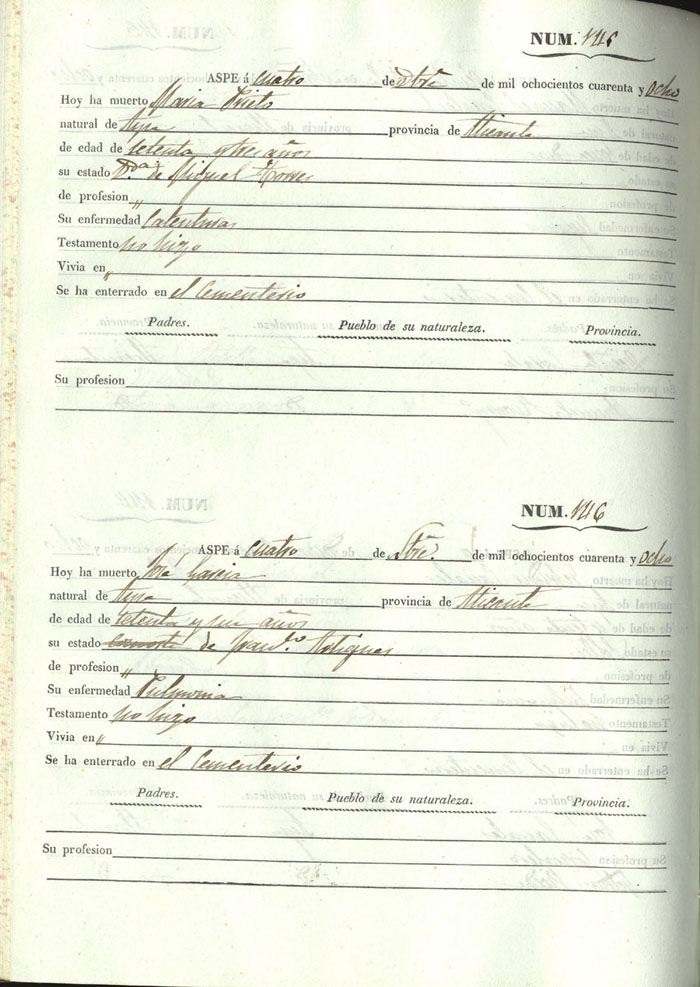 NUM.
ASPE á cuatro de Obre de mil ochocientos cuarenta y Ocho
Hoy ha muerto Maria Prieto
natural de Aspe provincia de Alicante
de edad de setenta y tres años
su estado Vda de Miguel Torres
de profesion „
Su enfermedad Calenturas
Testamento no hizo
Vivia en „
Se ha enterrado en el Cementerio
Padres. Pueblo de su naturaleza. Provincia.
Su profesion
NUM. 146
ASPE á cuatro de Obre. de mil ochocientos cuarenta y Ocho
Hoy ha muerto Garcia
natural de Aspe provincia de Alicante
de edad de setenta y años
su estado de
de profesion „
Su enfermedad Pulmonia
Testamento no hizo
Vivia en „
Se ha enterrado en el Cementerio
Padres. Pueblo de su naturaleza. Provincia.
Su profesion